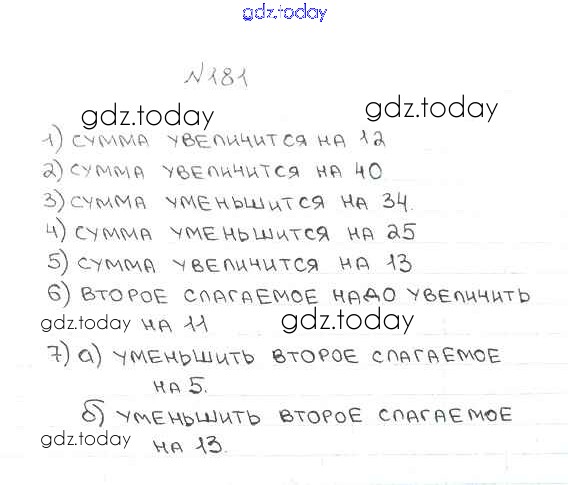 gdz.today
№181
gdz.today gdz.today
1) СУММА УВЕЛИЧИТСЯ НА 12
2) СУММА УВЕЛИЧИТСЯ НА 40
3) СУММА УМЕНЬШИТСЯ НА 34.
4) СУММА УМЕНЬШИТСЯ НА 25
5) СУММА УВЕЛИЧИТСЯ НА 13
6) ВТОРОЕ СЛАГАЕМОЕ НАДО УВЕЛИЧИТЬ
gdz.today НА 11 gdz.today
7) а) УМЕНЬШИТЬ ВТОРОЕ СЛАГАЕМОЕ
НА 5.
б) УМЕНЬШИТЬ ВТОРОЕ СЛАГАЕМОЕ
gdz.today НА 13.